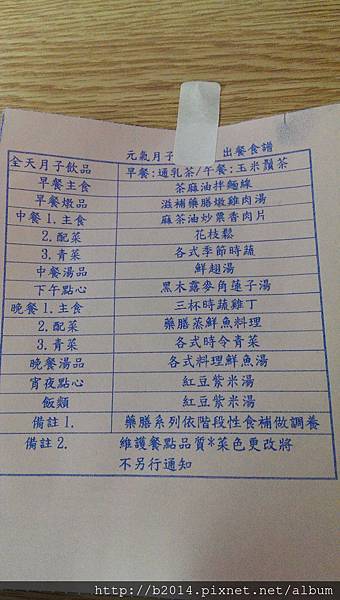 元氣月子 出餐食譜
全天月子飲品 早餐:通乳茶/午餐:玉米鬚茶
早餐主食 茶麻油拌麵線
早餐燉品 滋補藥膳燉雞肉湯
中餐1.主食 麻茶油炒栗香肉片
2.配菜 花枝鬆
3.青菜 各式季節時蔬
中餐湯品 鮮翅湯
下午點心 黑木露麥角蓮子湯
晚餐1.主食 三杯時蔬雞丁
2.配菜 藥膳蒸鮮魚料理
3.青菜 各式時令青菜
晚餐湯品 各式料理鮮魚湯
宵夜點心 紅豆紫米湯
飯類 紅豆紫米湯
備註1. 藥膳系列依階段性食補做調養
備註2. 維護餐點品質*菜色更改將
不另行通知
http://b2014.pixnet.net/album